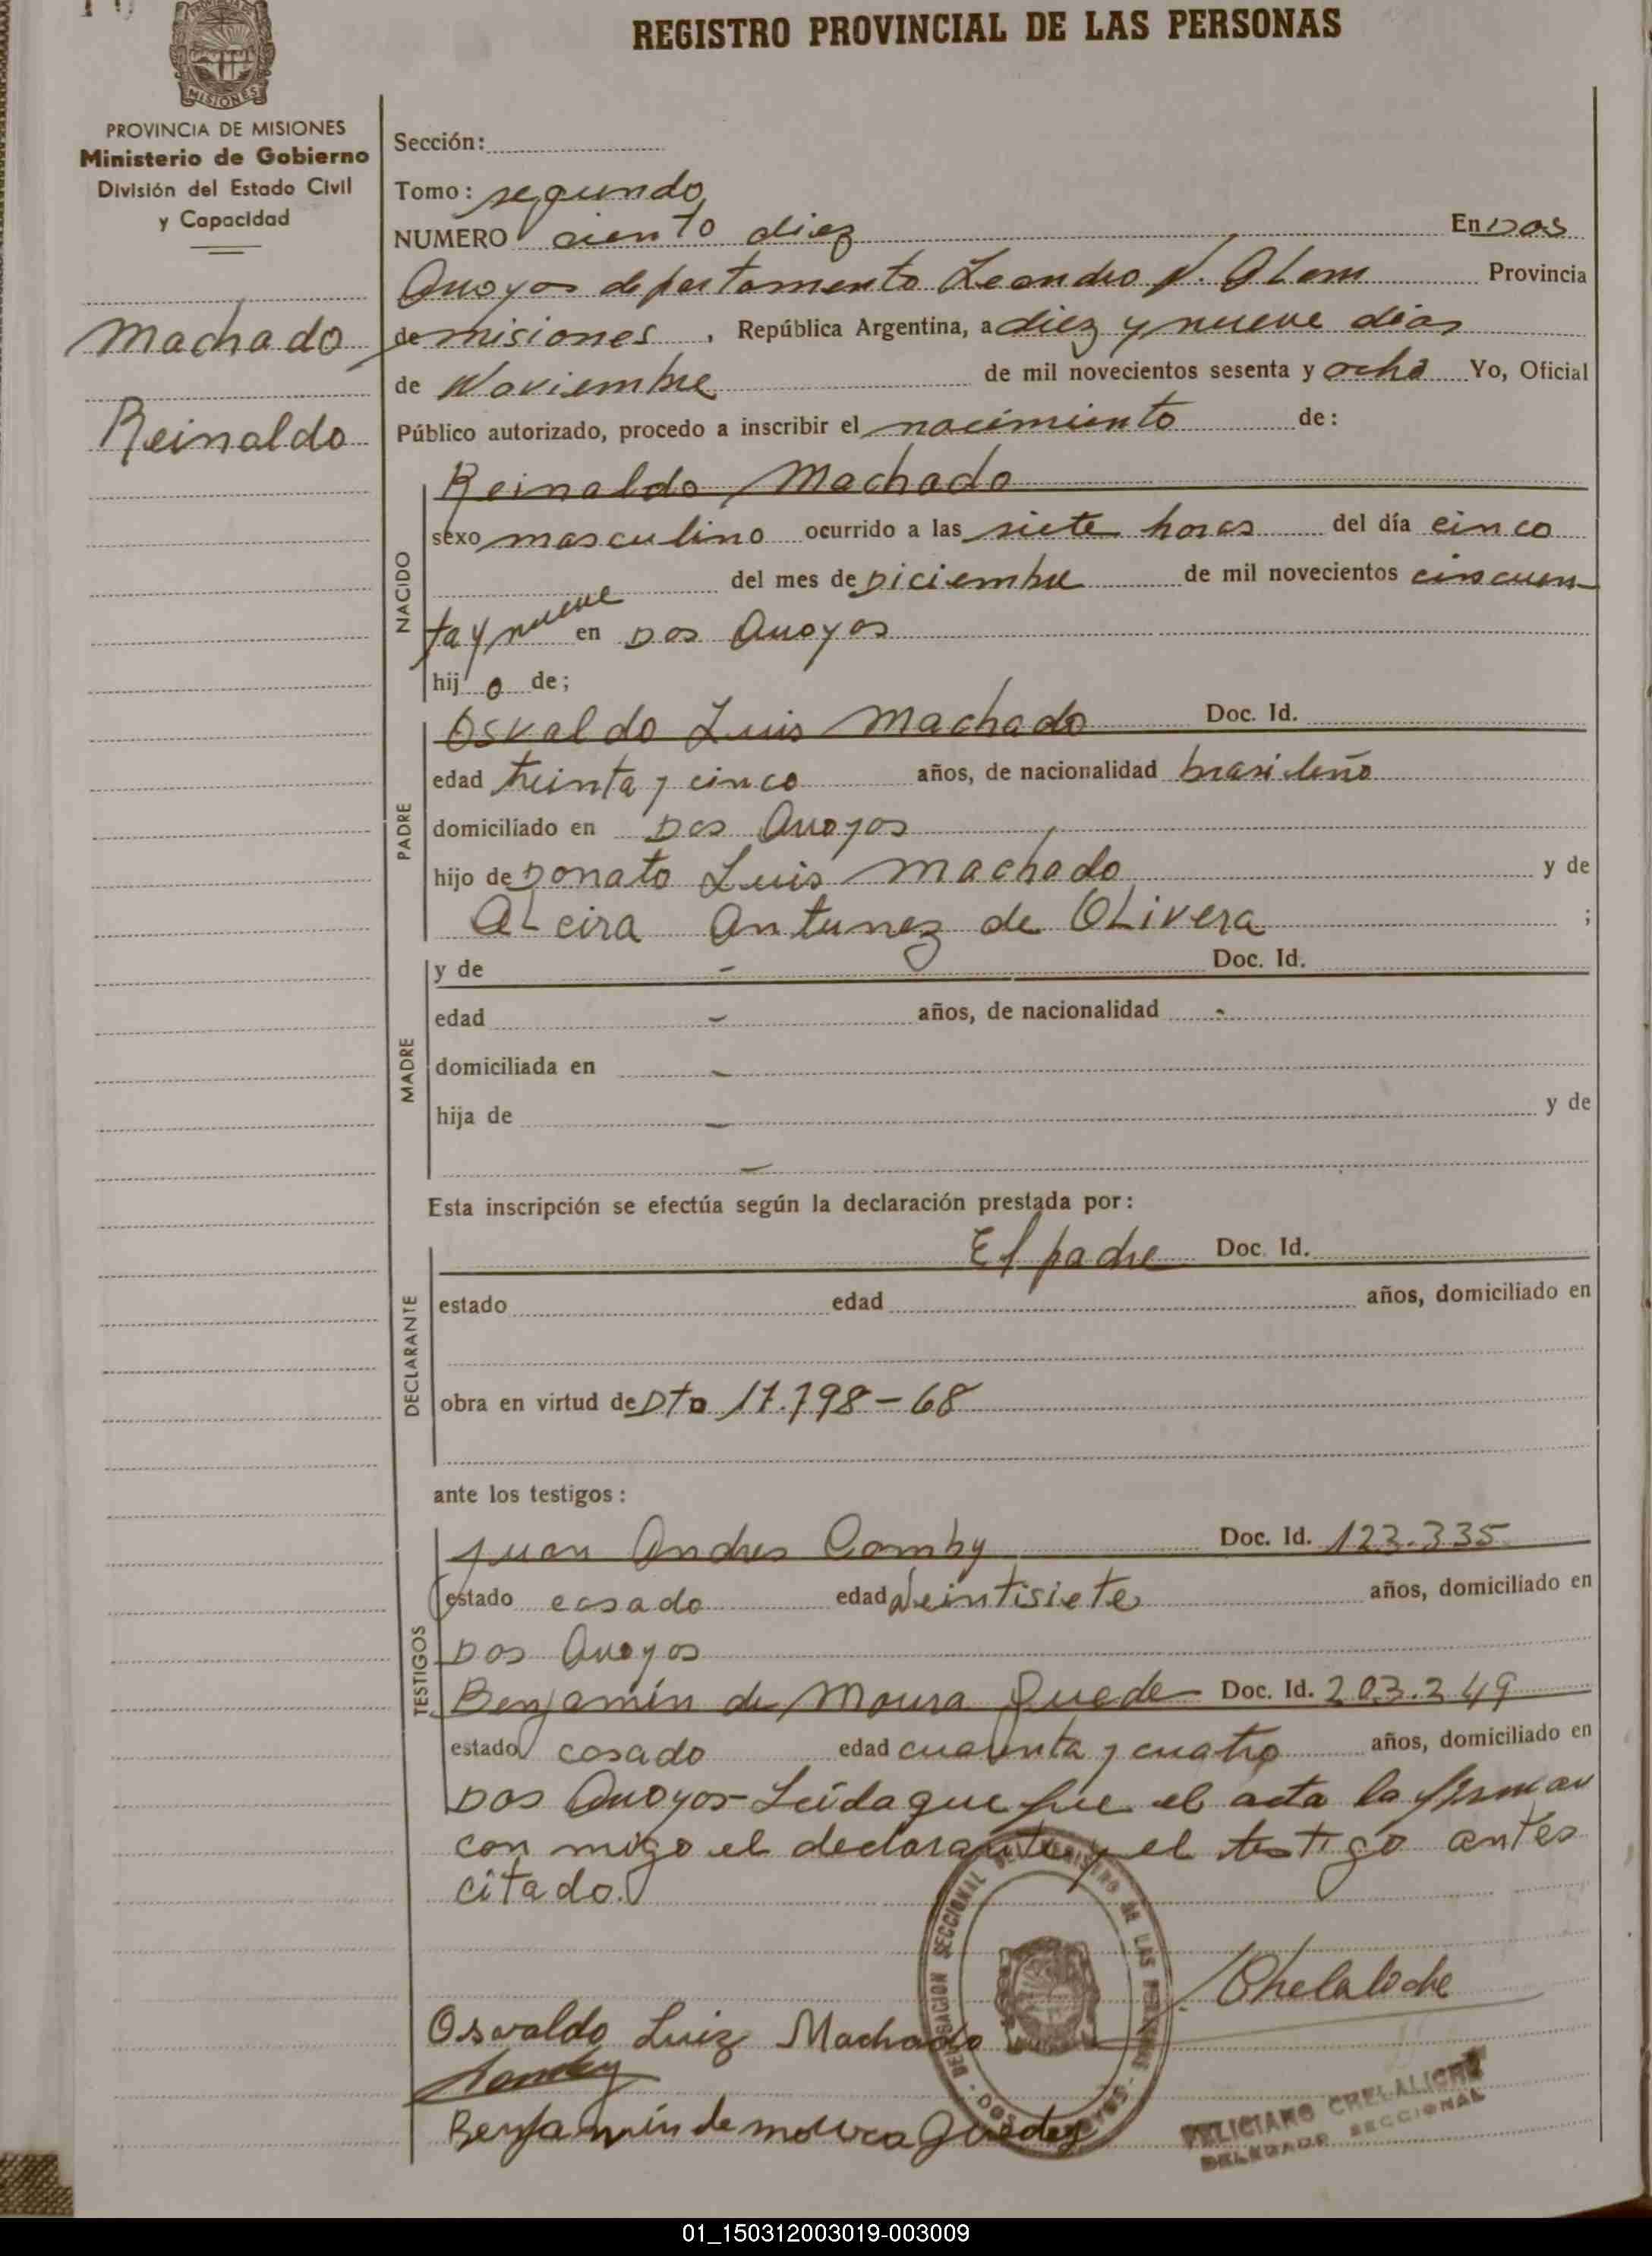 REGISTRO PROVINCIAL DE LAS PERSONAS
MISIONES
PROVINCIA DE MISIONES
Ministerio de Gobierno
División del Estado Civil
y Capacidad
Machado
Reinaldo
Sección:
Tomo: segundo
NUMERO ciento diez En Dos
Arroyos departamento Leandro N. Alem Provincia
de misiones, República Argentina, a diez y nueve dias
de Noviembre de mil novecientos sesenta y ocho Yo, Oficial
Público autorizado, procedo a inscribir el nacimiento de:
NACIDO
Reinaldo Machado
sexo masculino ocurrido a las siete horas del día cinco
del mes de Diciembre de mil novecientos cincuen
ta y nueve en Dos Arroyos
hijo de;
PADRE
Osvaldo Luis Machado Doc. Id.
edad treinta y cinco años, de nacionalidad brasileño
domiciliado en Dos Arroyos
hijo de Donato Luis Machado y de
Alcira Antunez de Olivera ;
MADRE
y de - Doc. Id.
edad - años, de nacionalidad -
domiciliada en -
hija de - y de
-
Esta inscripción se efectúa según la declaración prestada por:
DECLARANTE
El padre Doc. Id.
estado edad años, domiciliado en
obra en virtud de Dto 17.798-68
ante los testigos:
TESTIGOS
Juan Andres Doc. Id. 123.335
estado casado edad veintisiete años, domiciliado en
Dos Arroyos
Benjamín de Moura Quede Doc. Id. 203.249
estado casado edad cuarenta y cuatro años, domiciliado en
Dos Arroyos-Leída que fue el acta la firman
con migo el declarante y el testigo antes
citado.
DELEGACION SECCIONAL DEL REGISTRO DE LAS PERSONAS · DOS ARROYOS ·
Chelaliche
Osvaldo Luiz Machado
Benjamín de moura Guedez
FELICIANO CHELALICHE
DELEGADO SECCIONAL
01_150312003019-003009